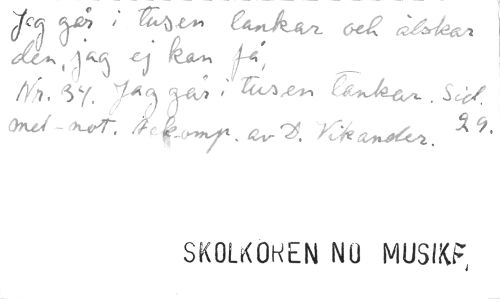 Jag går i tusen tankar och älskar
den, jag ej kan få,
Nr. 34. Jag går i tusen tankar. Sid.
mel-not. Ackomp. av D. Vikander. 29.
SKOLKÖREN NO MUSIKF,